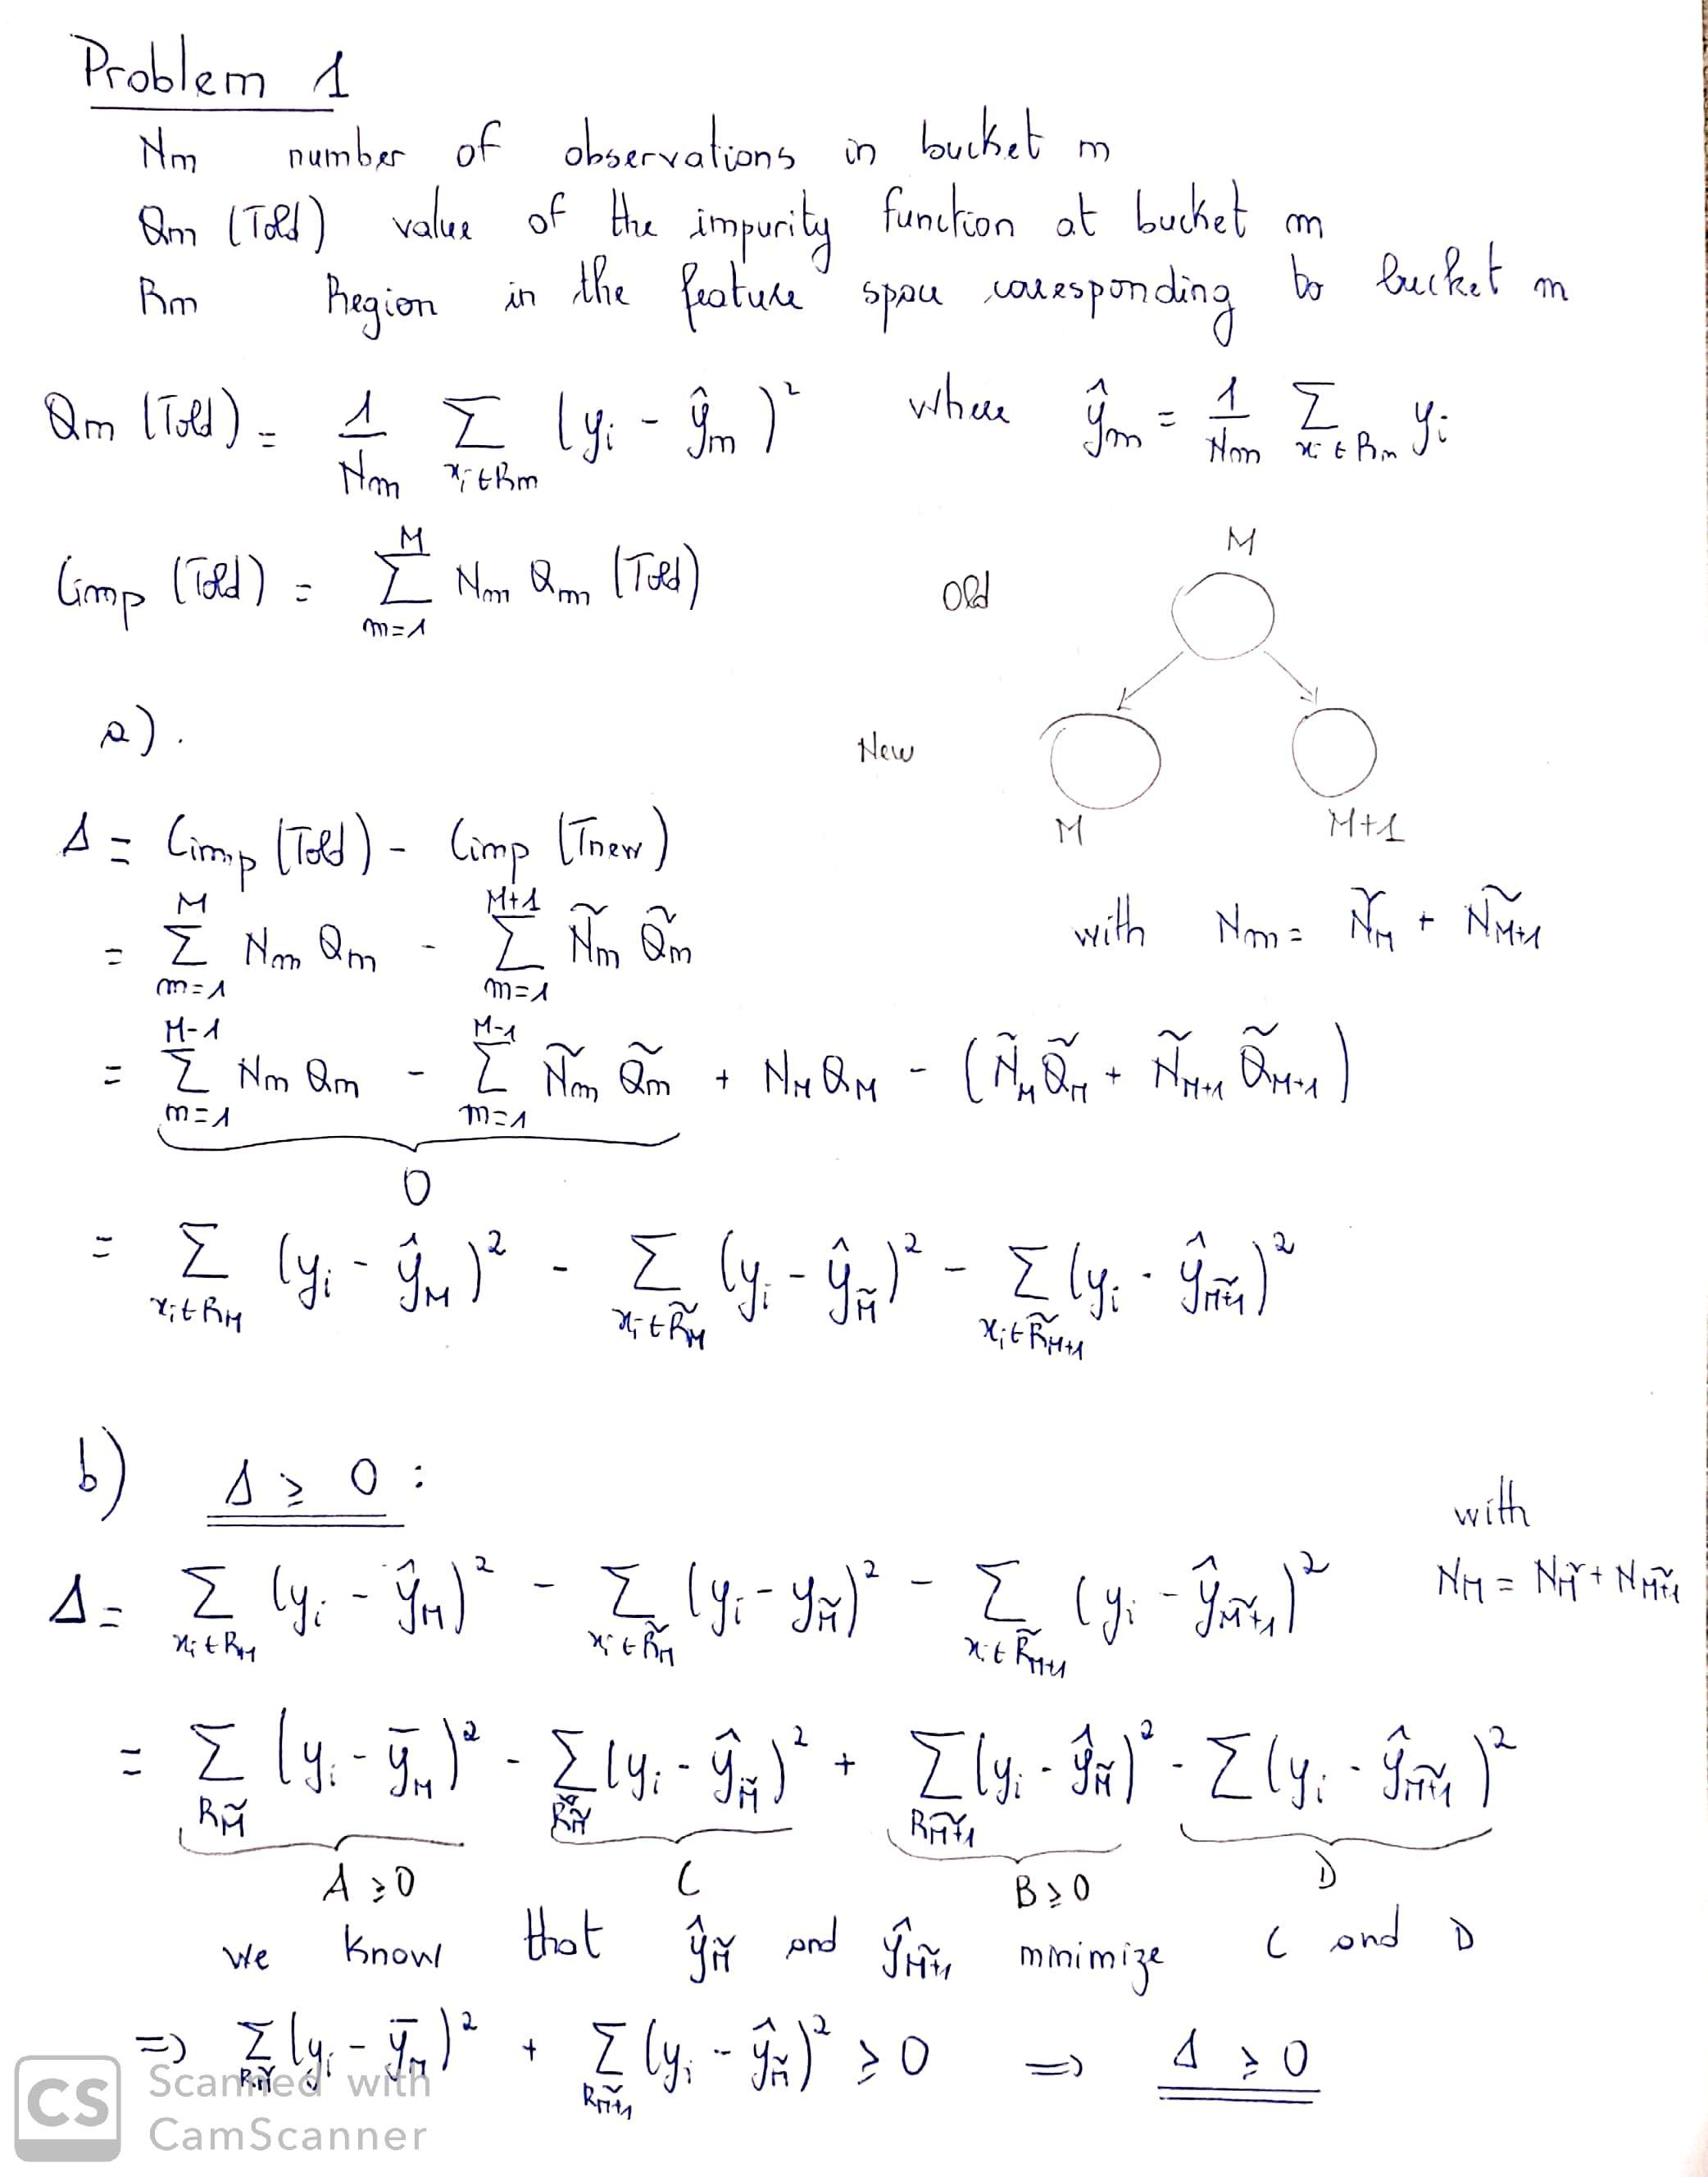 Problem 1
Nm number of observations in bucket m
Qm (Told) value of the impurity function at bucket m
Rm Region in the feature space corresponding to bucket m
Qm (Told) = 1/Nm Σ_{xi∈Rm} (yi - ŷm)² where ŷm = 1/Nm Σ_{xi∈Rm} yi
Cimp (Told) = Σ_{m=1}^{M} Nm Qm (Told)
M
Old
a).
New
M M+1
Δ = Cimp (Told) - Cimp (Tnew)
= Σ_{m=1}^{M} Nm Qm - Σ_{m=1}^{M+1} Ñm Q̃m with Nm = Ñ_M + Ñ_{M+1}
= Σ_{m=1}^{M-1} Nm Qm - Σ_{m=1}^{M-1} Ñm Q̃m + N_M Q_M - (Ñ_M Q̃_M + Ñ_{M+1} Q̃_{M+1})
0
= Σ_{xi∈R_M} (yi - ŷ_M)² - Σ_{xi∈R̃_M} (yi - ŷ_M̃)² - Σ_{xi∈R̃_{M+1}} (yi - ŷ_{M̃+1})²
b) Δ ≥ 0 :
with
Δ = Σ_{xi∈R_M} (yi - ŷ_M)² - Σ_{xi∈R̃_M} (yi - y_M̃)² - Σ_{xi∈R̃_{M+1}} (yi - ŷ_{M̃+1})² N_M = N_M̃ + N_{M̃+1}
= Σ_{R_M̃} (yi - ȳ_M)² - Σ_{R_M̃} (yi - ŷ_M̃)² + Σ_{R_{M̃+1}} (yi - ŷ_M̃)² - Σ (yi - ŷ_{M̃+1})²
A ≥ 0 C B ≥ 0 D
we know that ŷ_M̃ and ŷ_{M̃+1} minimize C and D
=> Σ_{R_M̃} (yi - ȳ_M)² + Σ_{R_{M̃+1}} (yi - ŷ_M̃)² ≥ 0 => Δ ≥ 0
CS Scanned with
CamScanner